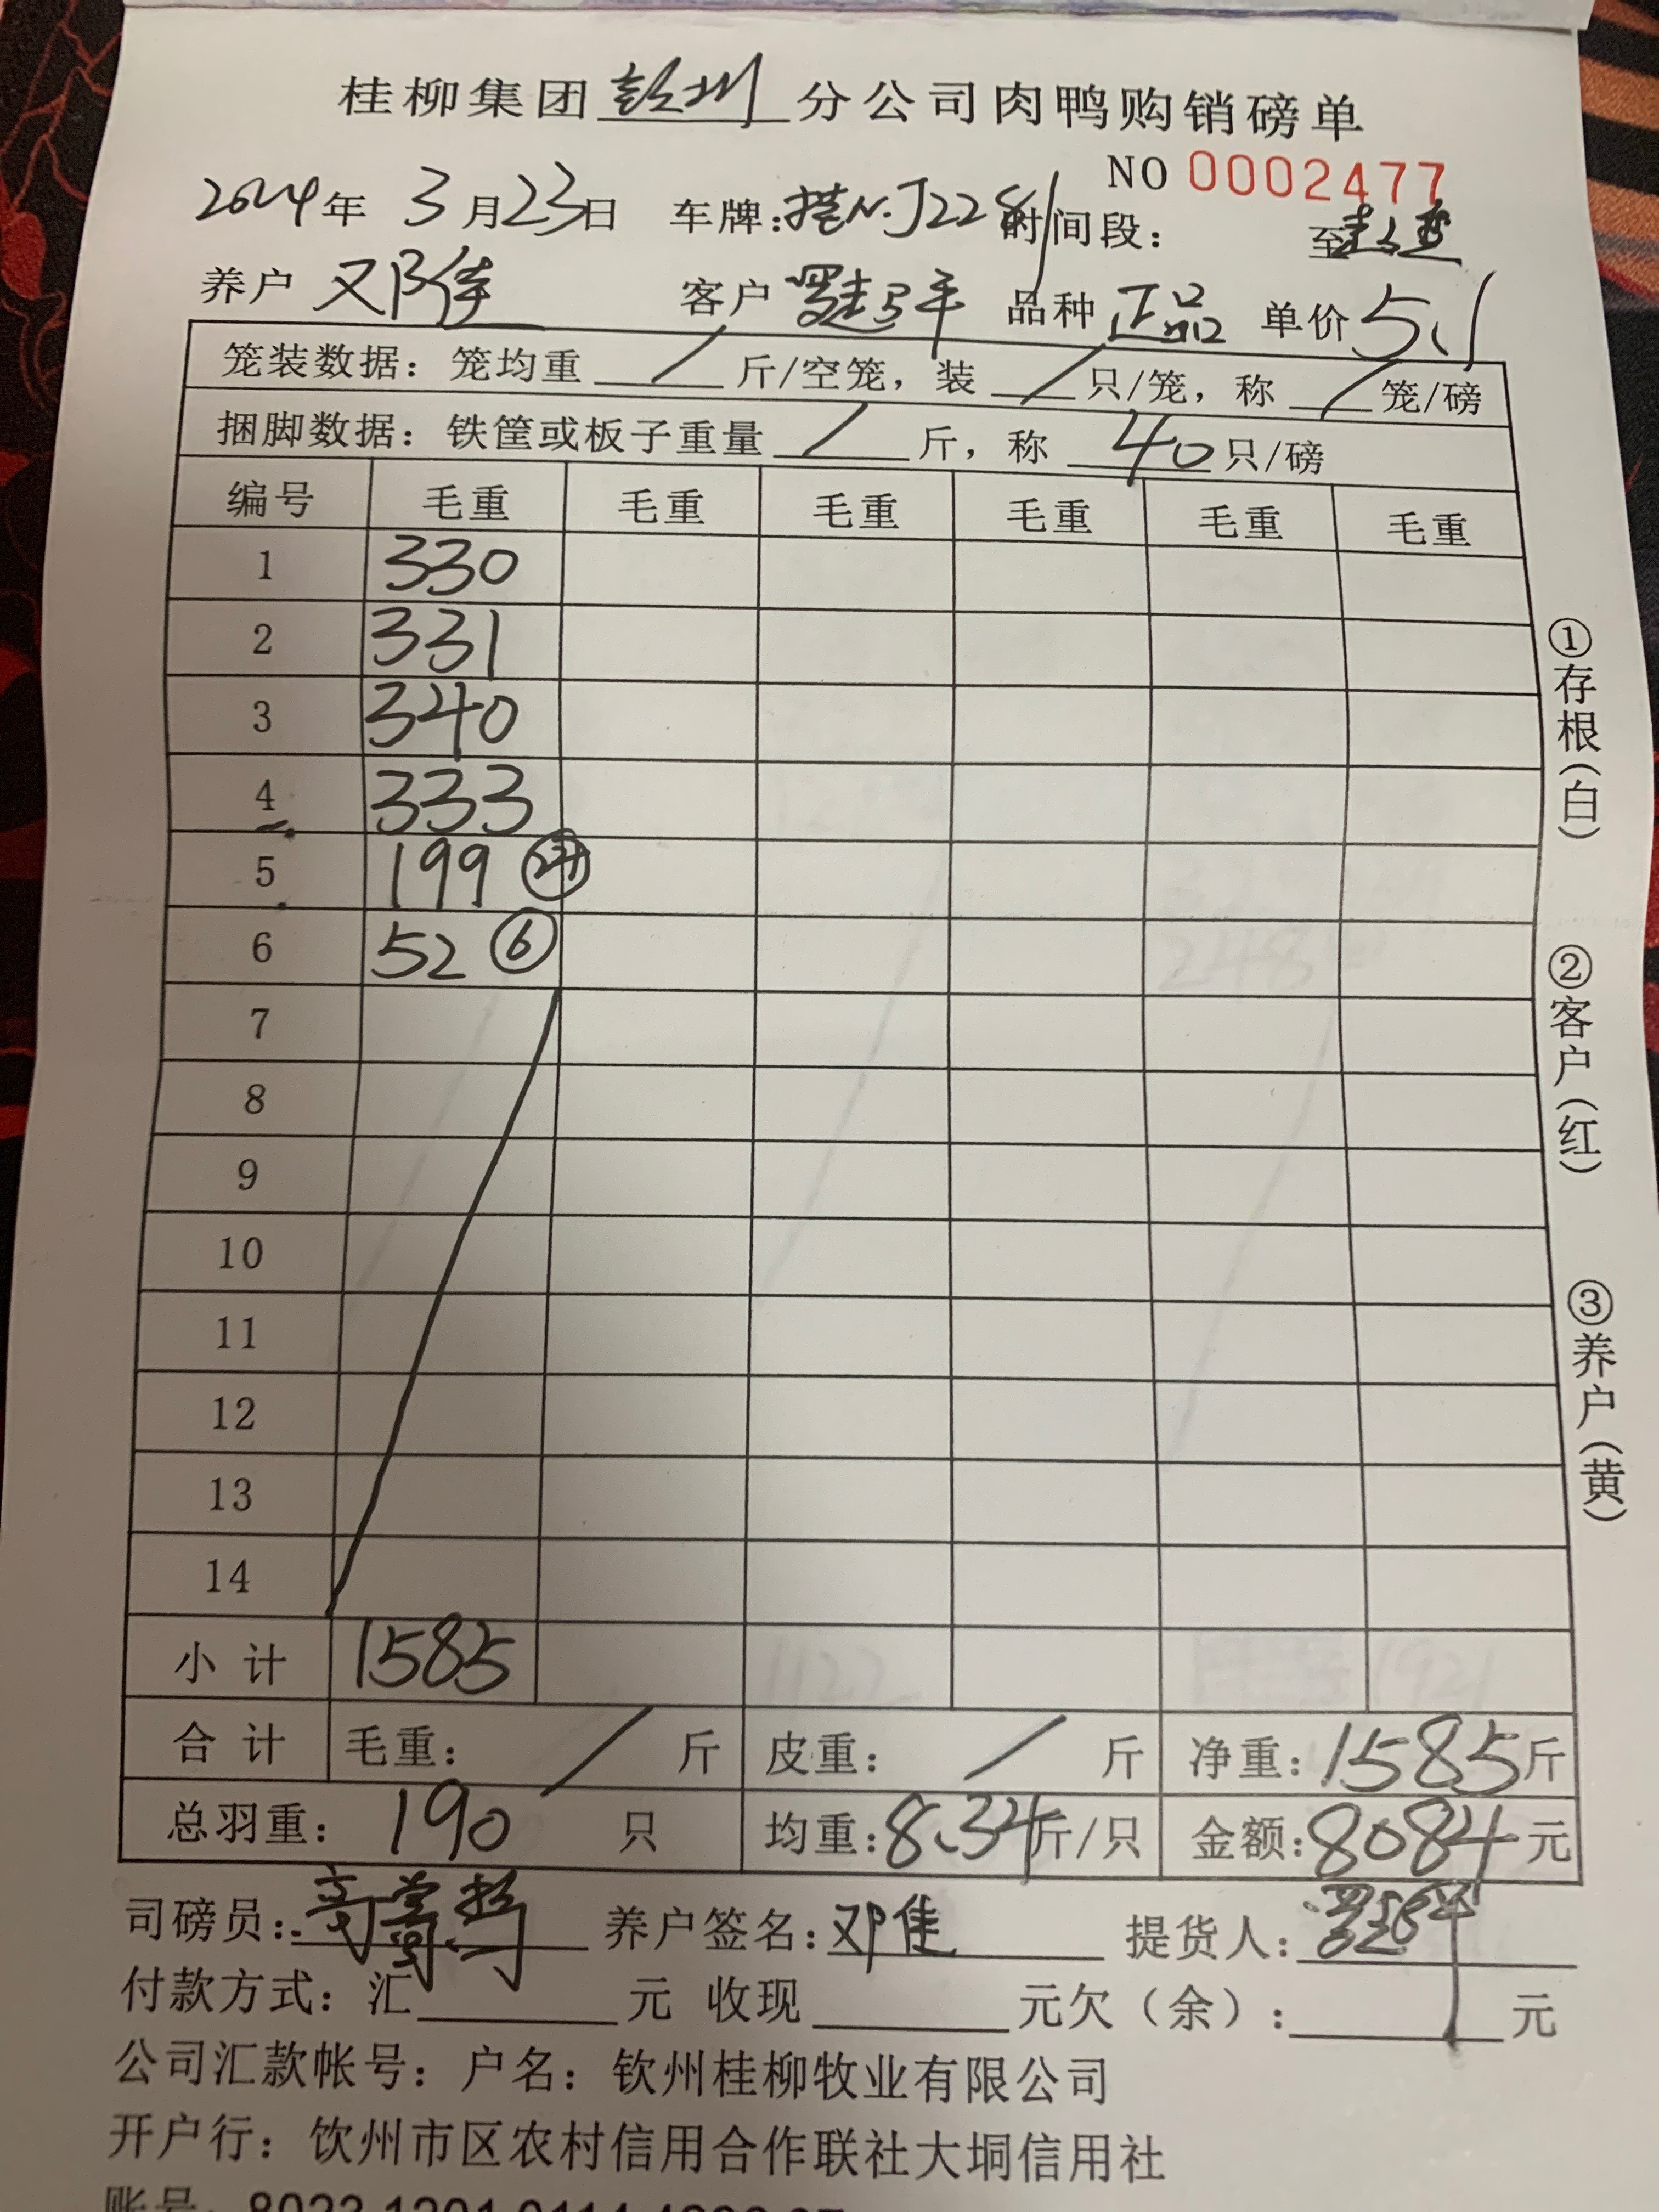 桂柳集团钦州分公司肉鸭购销磅单
NO 0002477
2024年 3月23日 车牌: J228 时间段： 至
养户 邓佳 客户 平 品种 正品 单价 5.1
笼装数据：笼均重 / 斤/空笼，装 / 只/笼，称 / 笼/磅
捆脚数据：铁筐或板子重量 / 斤，称 40 只/磅
编号 毛重 毛重 毛重 毛重 毛重 毛重
1 330
2 331
3 340
4 333
5 199 ㉔
6 52 ⑥
7
8
9
10
11
12
13
14
小 计 1585
合 计 毛重： / 斤 皮重： / 斤 净重：1585斤
总羽重： 190 只 均重：8.34斤/只 金额：8084元
司磅员： 养户签名：邓佳 提货人：
付款方式：汇 元 收现 元欠（余）： 元
公司汇款帐号：户名：钦州桂柳牧业有限公司
开户行：饮州市区农村信用合作联社大垌信用社
①存根（白）
②客户（红）
③养户（黄）